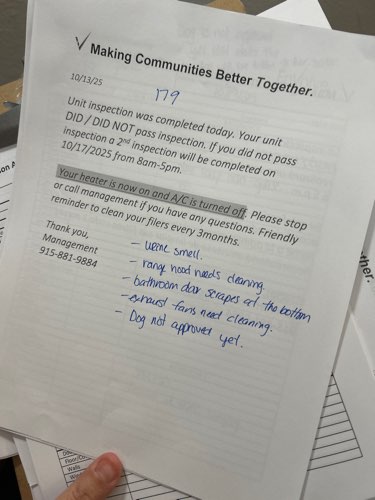 ✓ Making Communities Better Together.
10/13/25
179
Unit inspection was completed today. Your unit
DID / DID NOT pass inspection. If you did not pass
inspection a 2nd inspection will be completed on
10/17/2025 from 8am-5pm.
Your heater is now on and A/C is turned off. Please stop
or call management if you have any questions. Friendly
reminder to clean your filers every 3months.
Thank you,
Management
915-881-9884
- urine smell.
- range hood needs cleaning.
- bathroom door scrapes at the bottom
- exhaust fans need cleaning.
- Dog not approved yet.
ther.
Walls